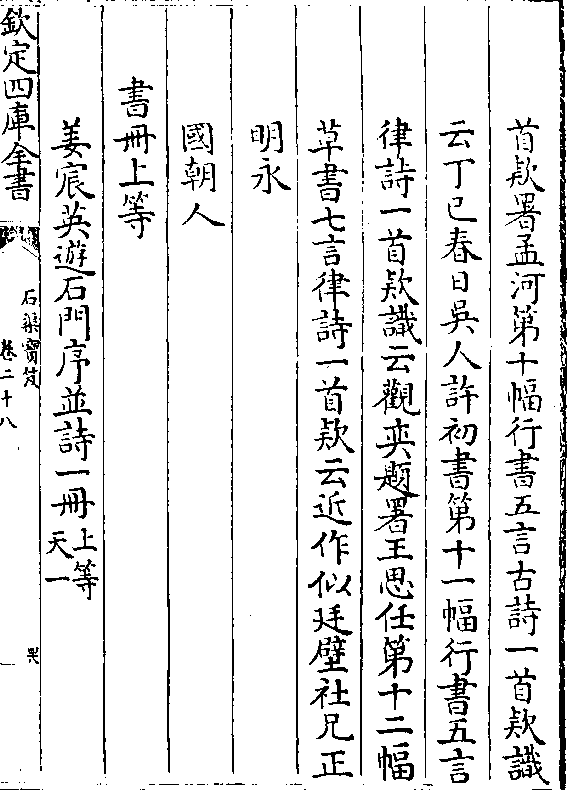 首款署孟河第十幅行書五言古詩一首款識
云丁巳春日吳人許初書第十一幅行書五言
律詩一首款識云觀奕題署王思任第十二幅
草書七言律詩一首款云近作似廷壁社兄正
明永
國朝人
書冊上等
姜宸英遊石門序並詩一冊上等天一
欽定四庫全書
石渠寶笈
卷二十八